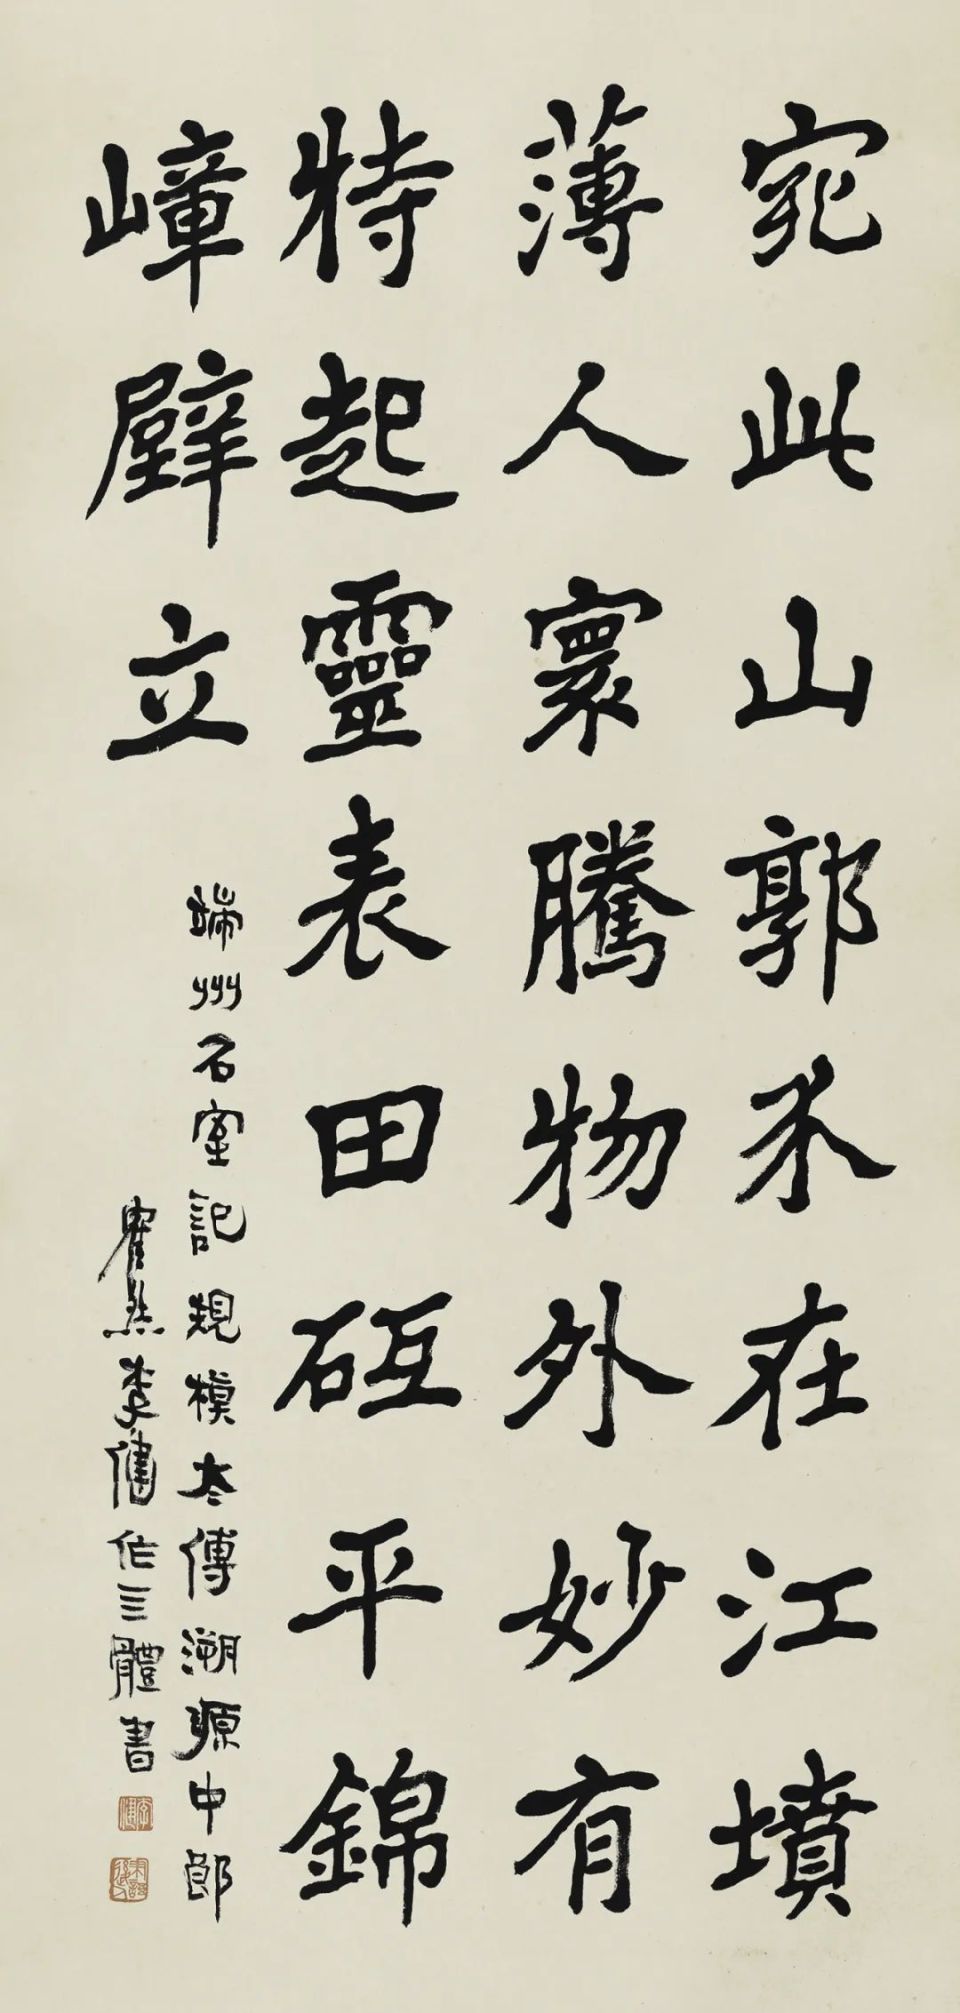 宛此山郭不在江墳
薄人寰騰物外妙有
特起靈表田砥平錦
嶂壁立
端州石室記規模太傅溯源中郎
隺然李健作三體書
李健